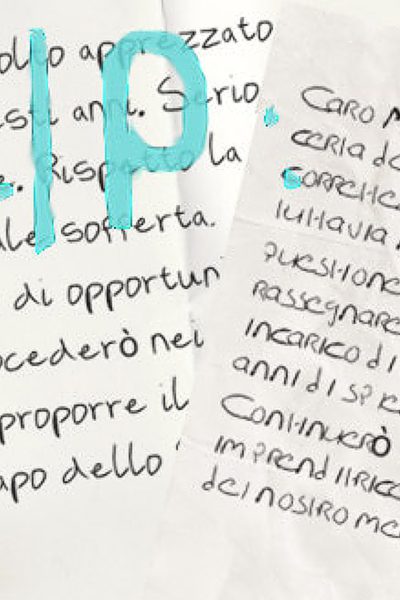 lp
olto apprezzato
sti anni. Serio
e. Rispetto la
ale sofferta.
di opportun
ocederò nei
proporre il
apo dello
CARO M
CERIA
CORRETTE
TUTTAVIA
QUESTIONE
RASSEGNARE
INCARICO DI
ANNI DI
CONTINUERÒ
IMPRENDITRIC
DEL NOSTRO ME